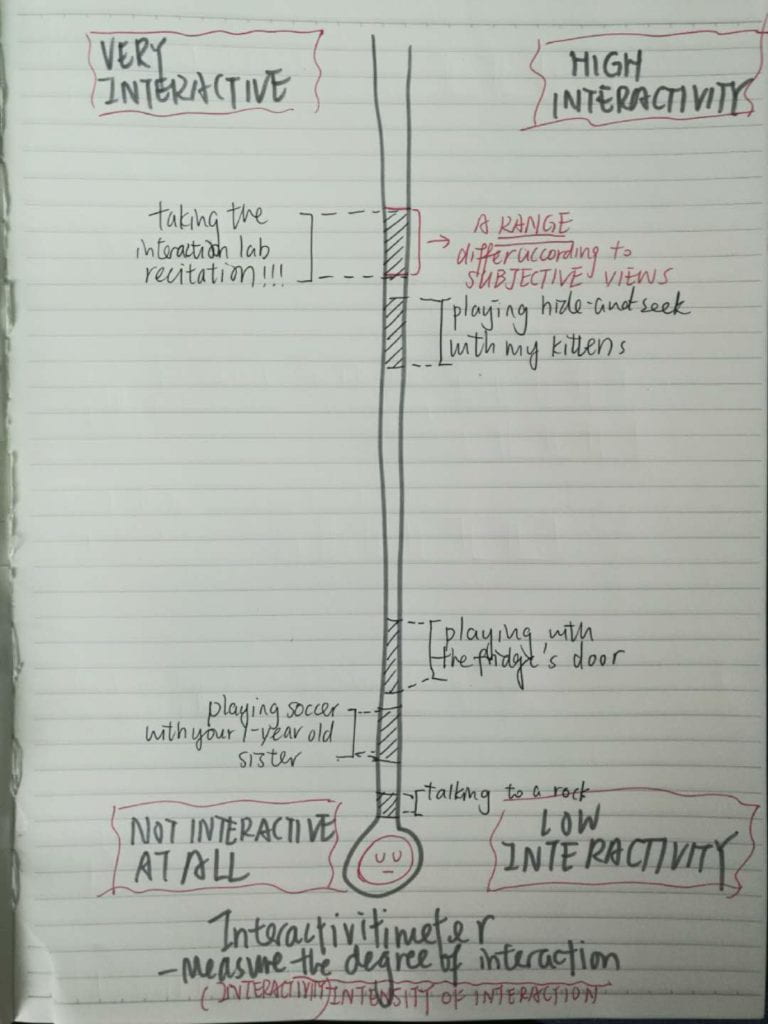 VERY
INTERACTIVE
HIGH
INTERACTIVITY
taking the
interaction lab
recitation!!!
A RANGE
differ according to
SUBJECTIVE VIEWS
playing hide-and-seek
with my kittens
playing with
the fridge's door
playing soccer
with your 1-year old
sister
talking to a rock
NOT INTERACTIVE
AT ALL
LOW
INTERACTIVITY
Interactivitimeter
- measure the degree of interaction
(INTERACTIVITY) INTENSITY OF INTERACTION